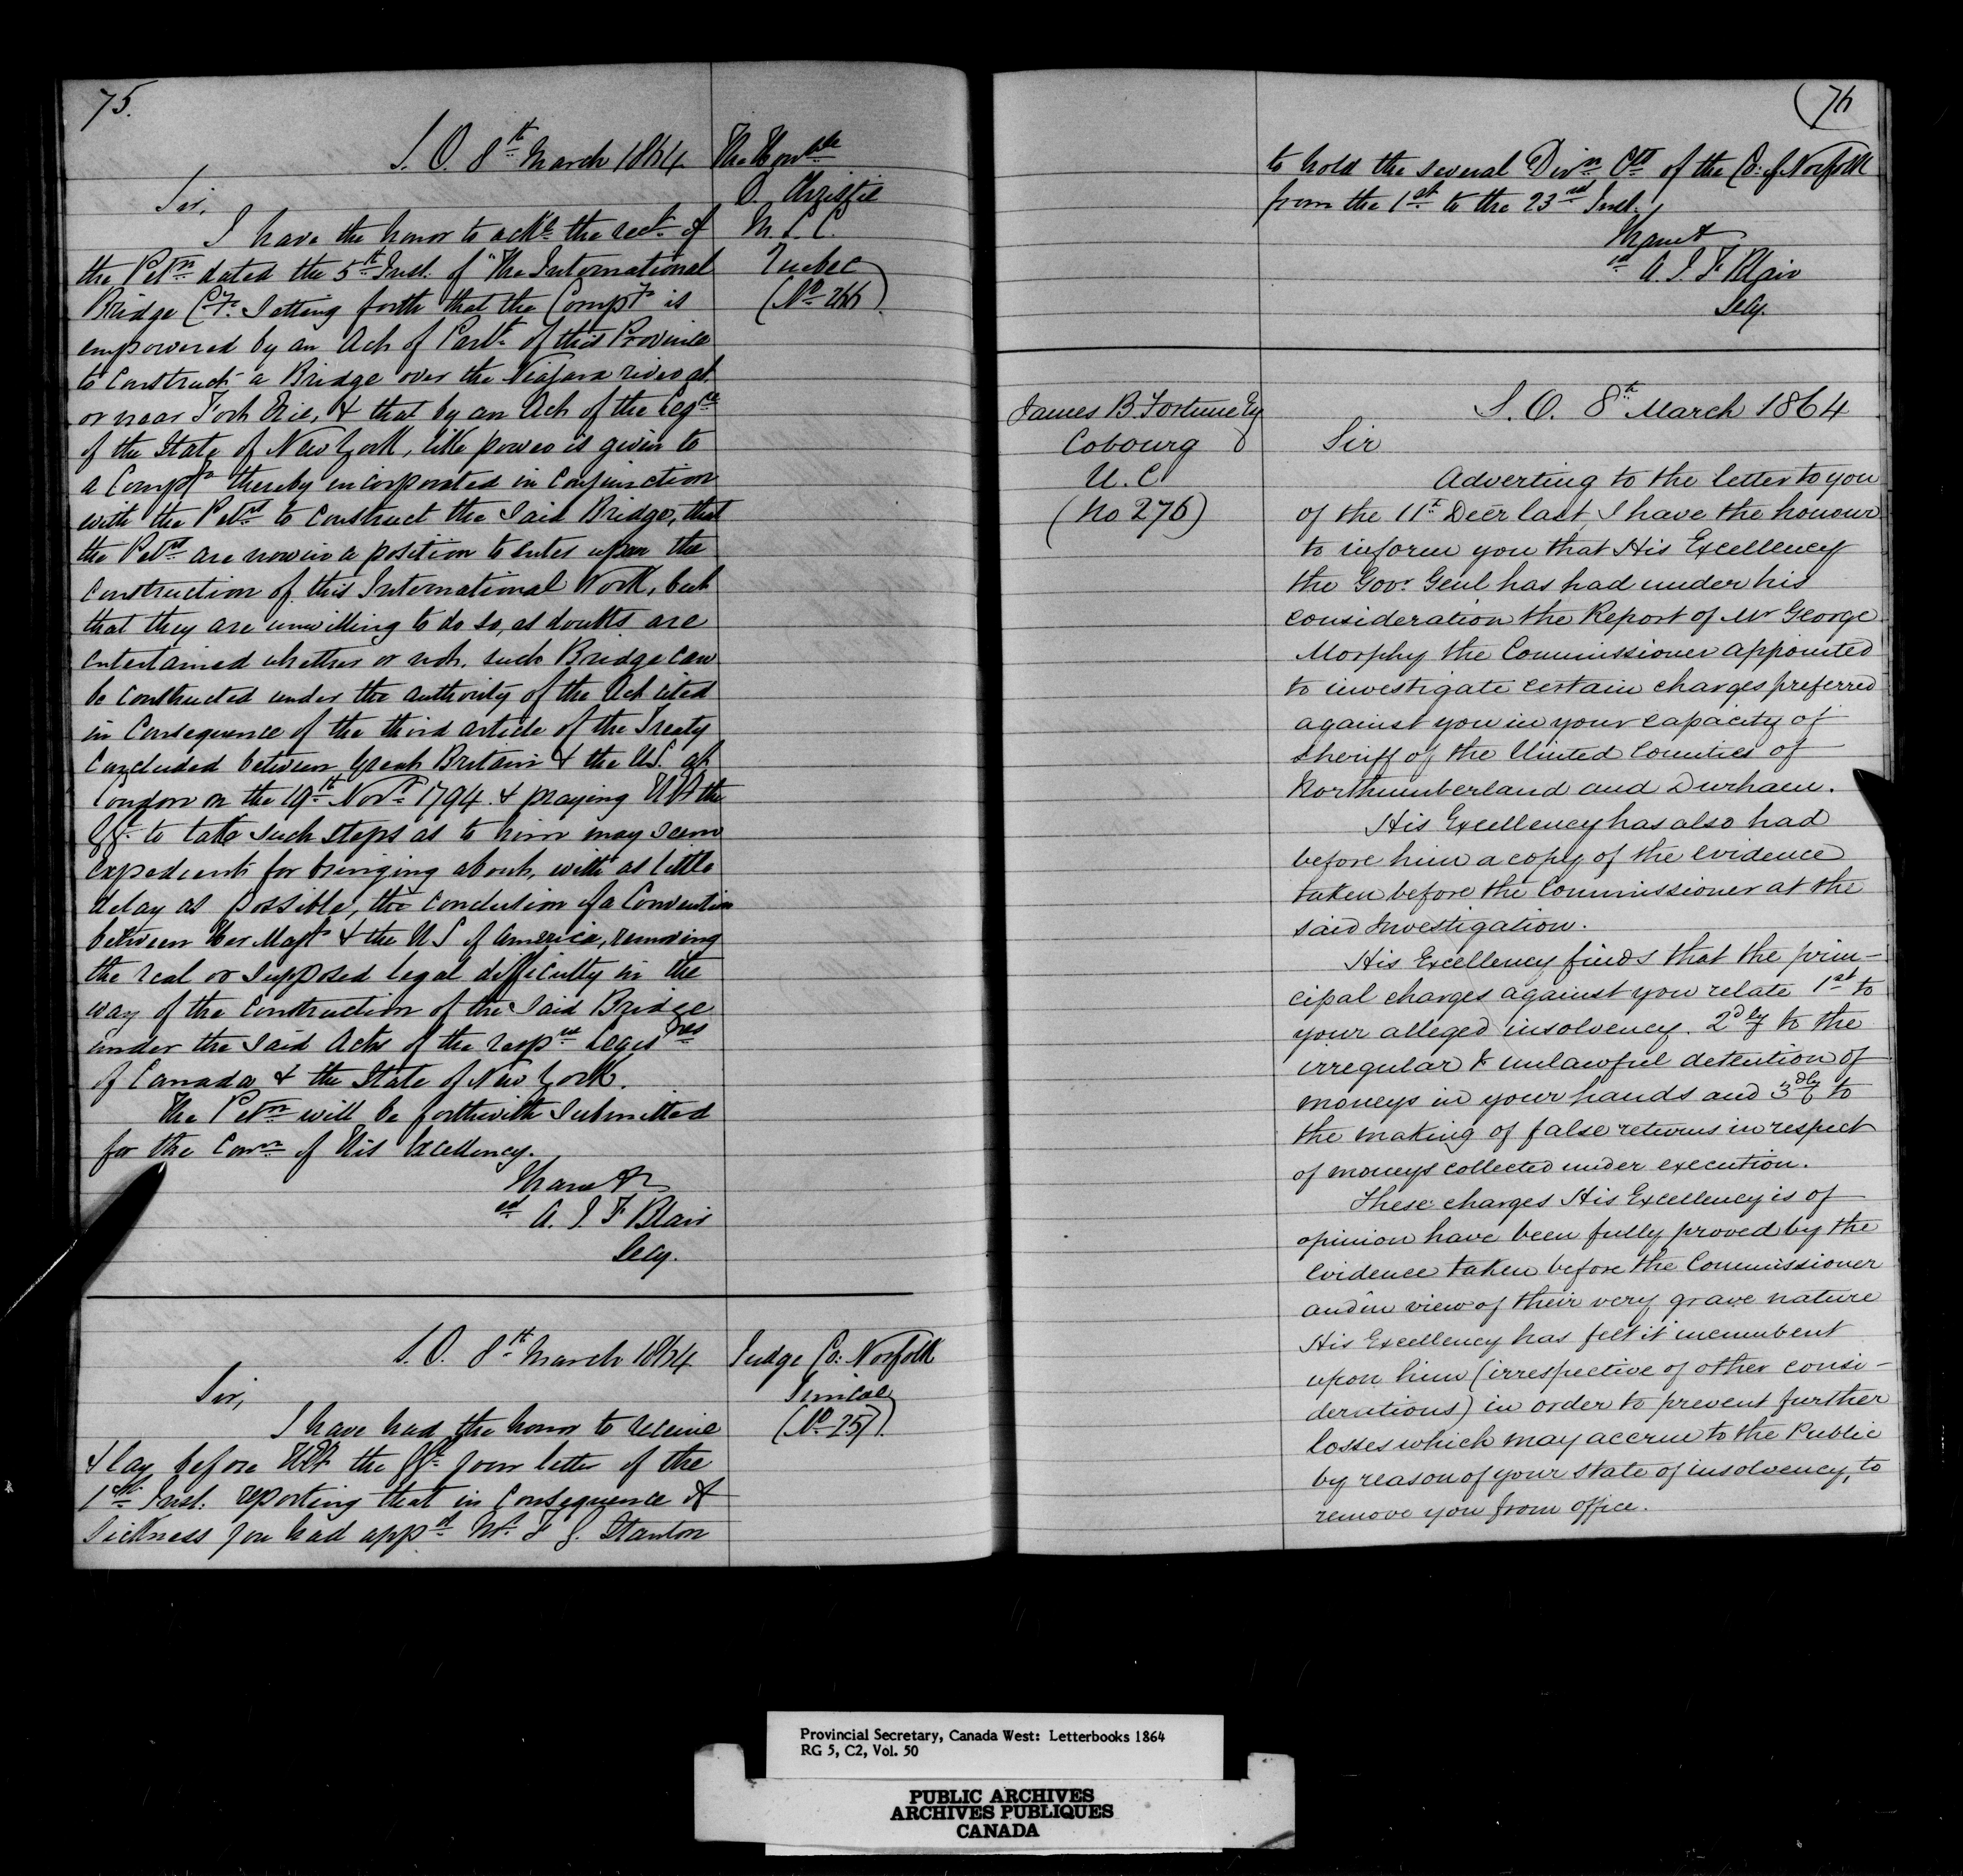 75.
S. O. 8th March 1864
The Honble
D. Christie
M. L. C.
Quebec
(No 266)
Sir,
I have the honor to ackge the rect of
the Petn dated the 5th Inst. of "The International
Bridge Coy. Setting forth that the Compy is
empowered by an Act of Parlt of this Province
to construct a Bridge over the Niagara river at
or near Fort Erie, & that by an Act of the Legre
of the State of New York, like power is given to
a Compy thereby incorporated in conjunction
with the Petrs to construct the said Bridge, that
the Petrs are now in a position to enter upon the
construction of this International Work, but
that they are unwilling to do so, as doubts are
entertained whether or not, such Bridge can
be constructed under the authority of the Act cited
in consequence of the third article of the Treaty
concluded between Great Britain & the U.S. at
London on the 19th Novr 1794 & praying HE the
GG. to take such steps as to him may seem
expedient for bringing about, with as little
delay as possible, the conclusion of a Convention
between Her Majy & the U S of America, removing
the real or supposed legal difficulty in the
way of the construction of the said Bridge
under the said Acts of the respve Legisres
of Canada & the State of New York.
The Petn will be forthwith submitted
for the Conn of His Excellency.
I have &c
sd A. J. F Blair
Secy.
S. O. 8th March 1864
Judge Co: Norfolk
Simcoe
(No 257).
Sir,
I have had the honor to receive
& lay before HE the GG. your letter of the
1st Inst. reporting that in consequence of
sickness you had appd Mr. F G. Stanton
76
to hold the several Divn Cts of the Co: of Norfolk
from the 1st to the 23rd Inst.
I have &
sd A. J. F Blair
Secy.
James B. Fortune Esq
Cobourg
U. C
(No 276)
S. O. 8th March 1864
Sir
Adverting to the letter to you
of the 11th Decr last, I have the honour
to inform you that His Excellency
the Govr. Genl has had under his
consideration the Report of Mr George
Morphy the Commissioner appointed
to investigate certain charges preferred
against you in your capacity of
Sheriff of the United Counties of
Northumberland and Durham.
His Excellency has also had
before him a copy of the evidence
taken before the Commissioner at the
said Investigation.
His Excellency finds that the prin-
cipal charges against you relate 1st to
your alleged insolvency. 2dly to the
irregular & unlawful detention of
moneys in your hands and 3dly to
the making of false returns in respect
of moneys collected under execution.
These charges His Excellency is of
opinion have been fully proved by the
Evidence taken before the Commissioner
and in view of their very grave nature
His Excellency has felt it incumbent
upon him (irrespective of other consi-
derations) in order to prevent further
losses which may accrue to the Public
by reason of your state of insolvency, to
remove you from office.
Provincial Secretary, Canada West: Letterbooks 1864
RG 5, C2, Vol. 50
PUBLIC ARCHIVES
ARCHIVES PUBLIQUES
CANADA